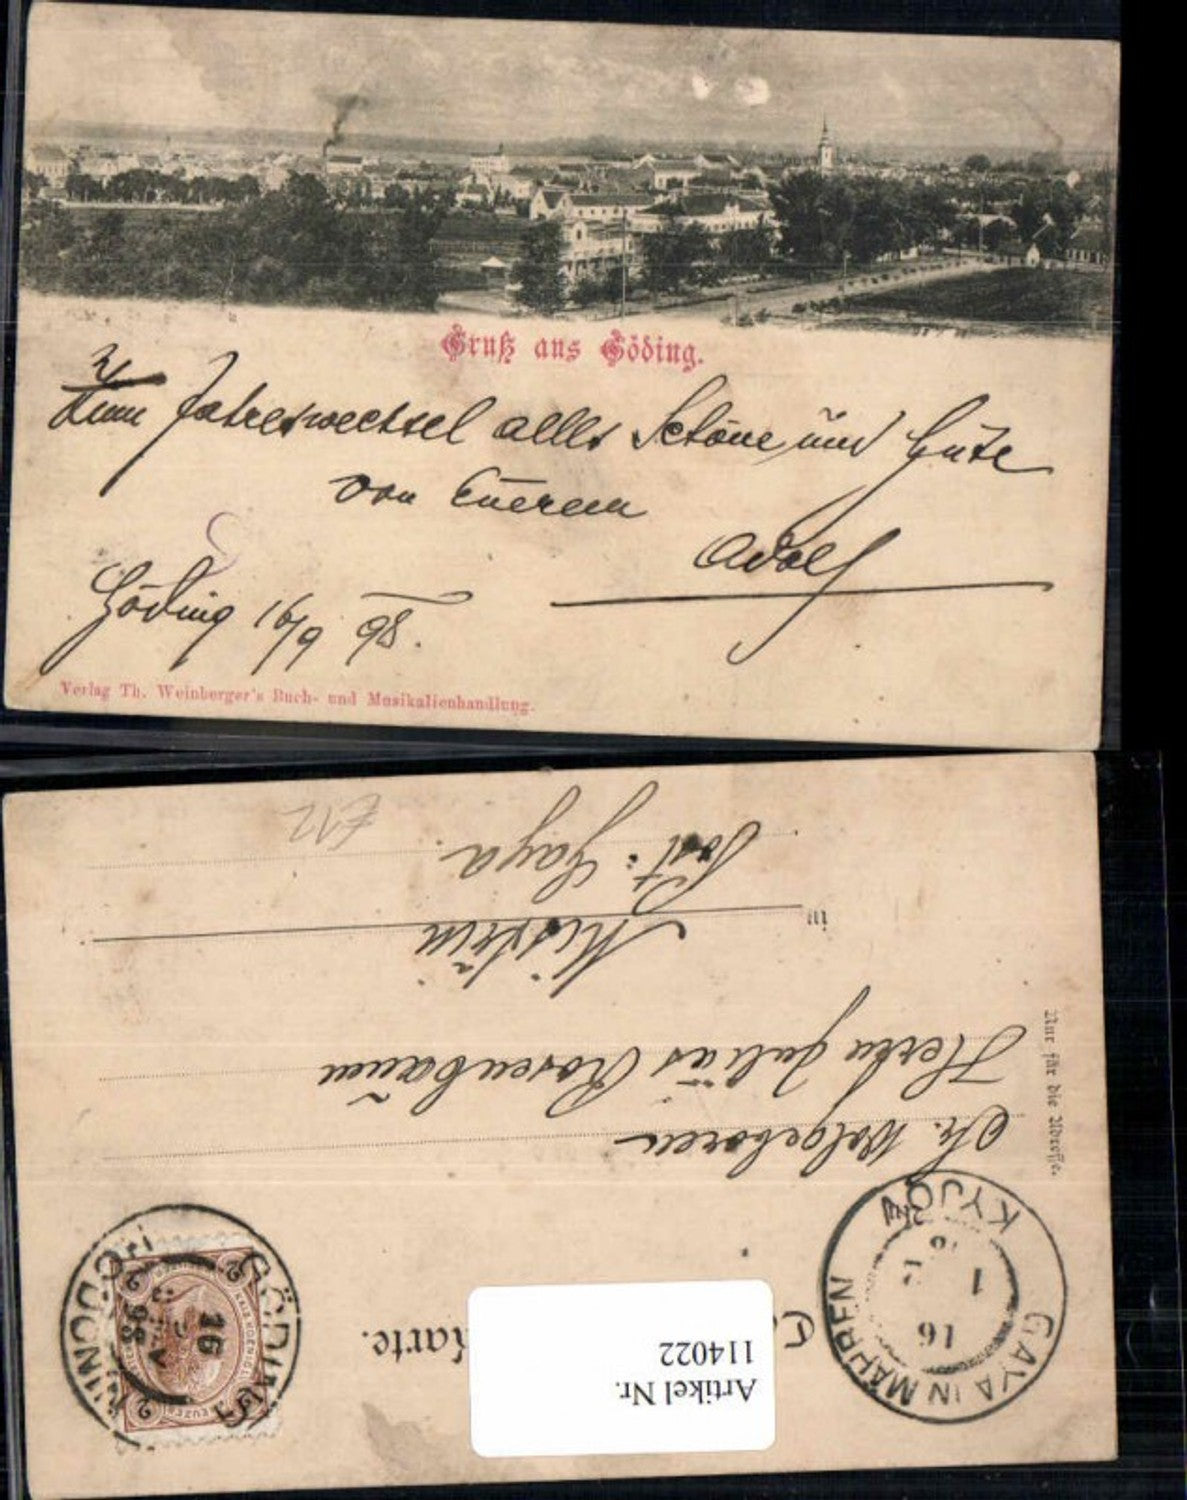 Gruß aus Göding.
Zum Jahreswechsel alles Schöne und Gute
von Euerem
Adolf
Göding 16/9 98.
Verlag Th. Weinberger's Buch- und Musikalienhandlung.
Artikel Nr.
114022
Karte.
GÖDING
HODONÍN
16
9
98
2
2
2
GAYA IN MÄHREN
KYJOV
16
Nur für die Adresse.
Sr. Wolgeboren
Herrn Julius Rosenbaum
in
Mistřin
Post: Gaya.